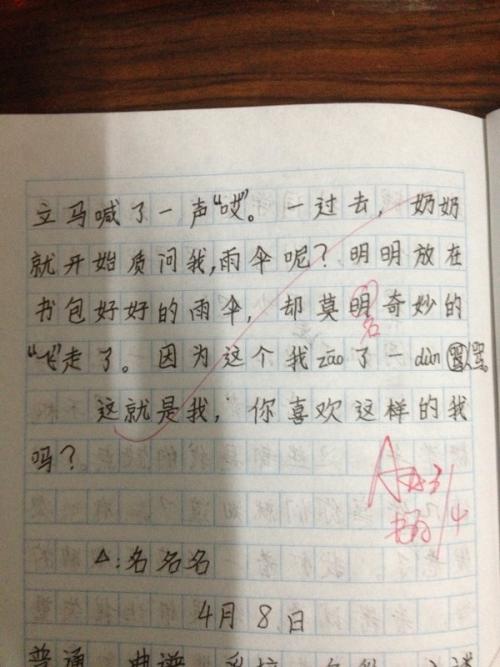 立马喊了一声“哎”。一过去，奶奶
就开始质问我,雨伞呢？明明放在
书包好好的雨伞，却莫明奇妙的
名
“飞”走了。因为这个我zāo了一dùn骂。
这就是我，你喜欢这样的我
吗？
△:名名名
4月8日